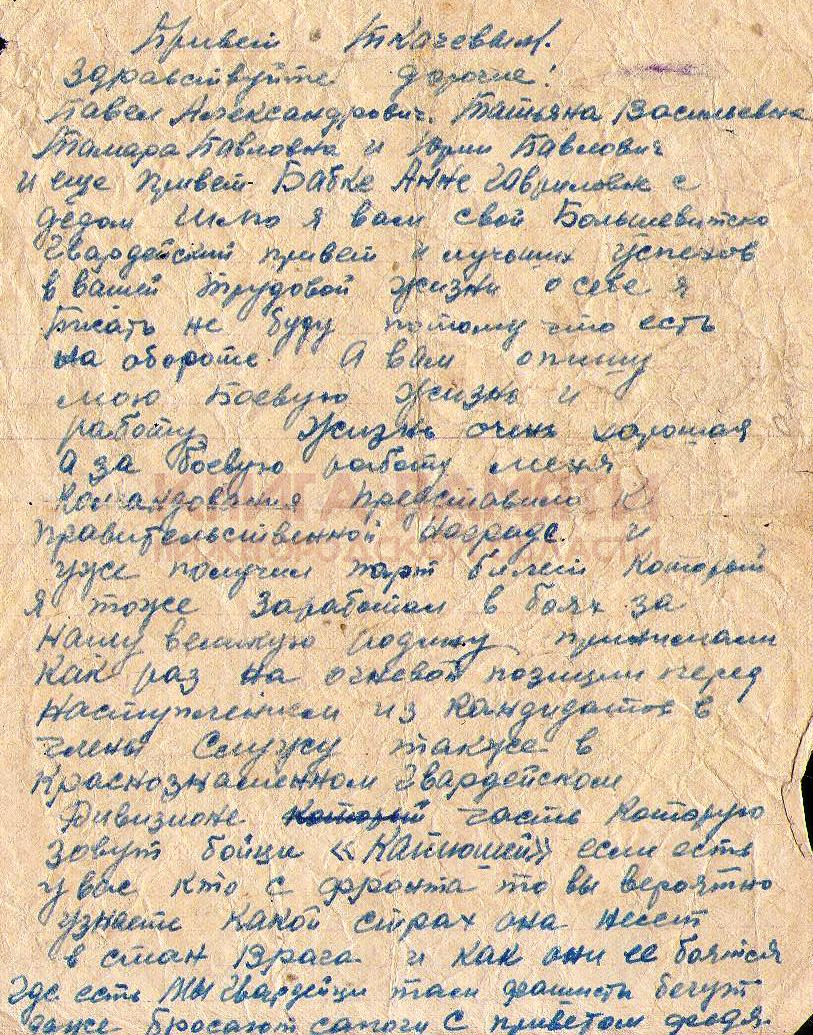 Привет Ткачевым.
Здравствуйте дорогие!
Павел Александрович. Татьяна Васильевна
Тамара Павловна и Юрий Павлович
и еще привет Бабке Анне Гавриловне с
дедом Шлю я вам свой Большевитско
Гвардейский привет и лучших успехов
в вашей трудовой жизни о себе я
Писать не буду потому что есть
на обороте А вам опишу
мою Боевую жизнь и
работу. Жизнь очень хорошая
А за боевую работу меня
Командования представило к
правительственной награде и
уже получил парт билет который
я тоже заработал в боях за
нашу великую родину принимали
как раз на огневой позиции перед
наступлением из кандидатов в
члены Служу также в
Краснознаменном Гвардейском
Дивизионе который часть которую
зовут бойцы «Катюшей» если есть
у вас кто с фронта то вы вероятно
узнаете какой страх она несет
в стан врага и как они ее боятся
где есть мы Гвардейци там фашисты бегут
даже бросают сапоги С приветом Федя.
КНИГА ПАМЯТИ
НИЖЕГОРОДСКОЙ ОБЛАСТИ